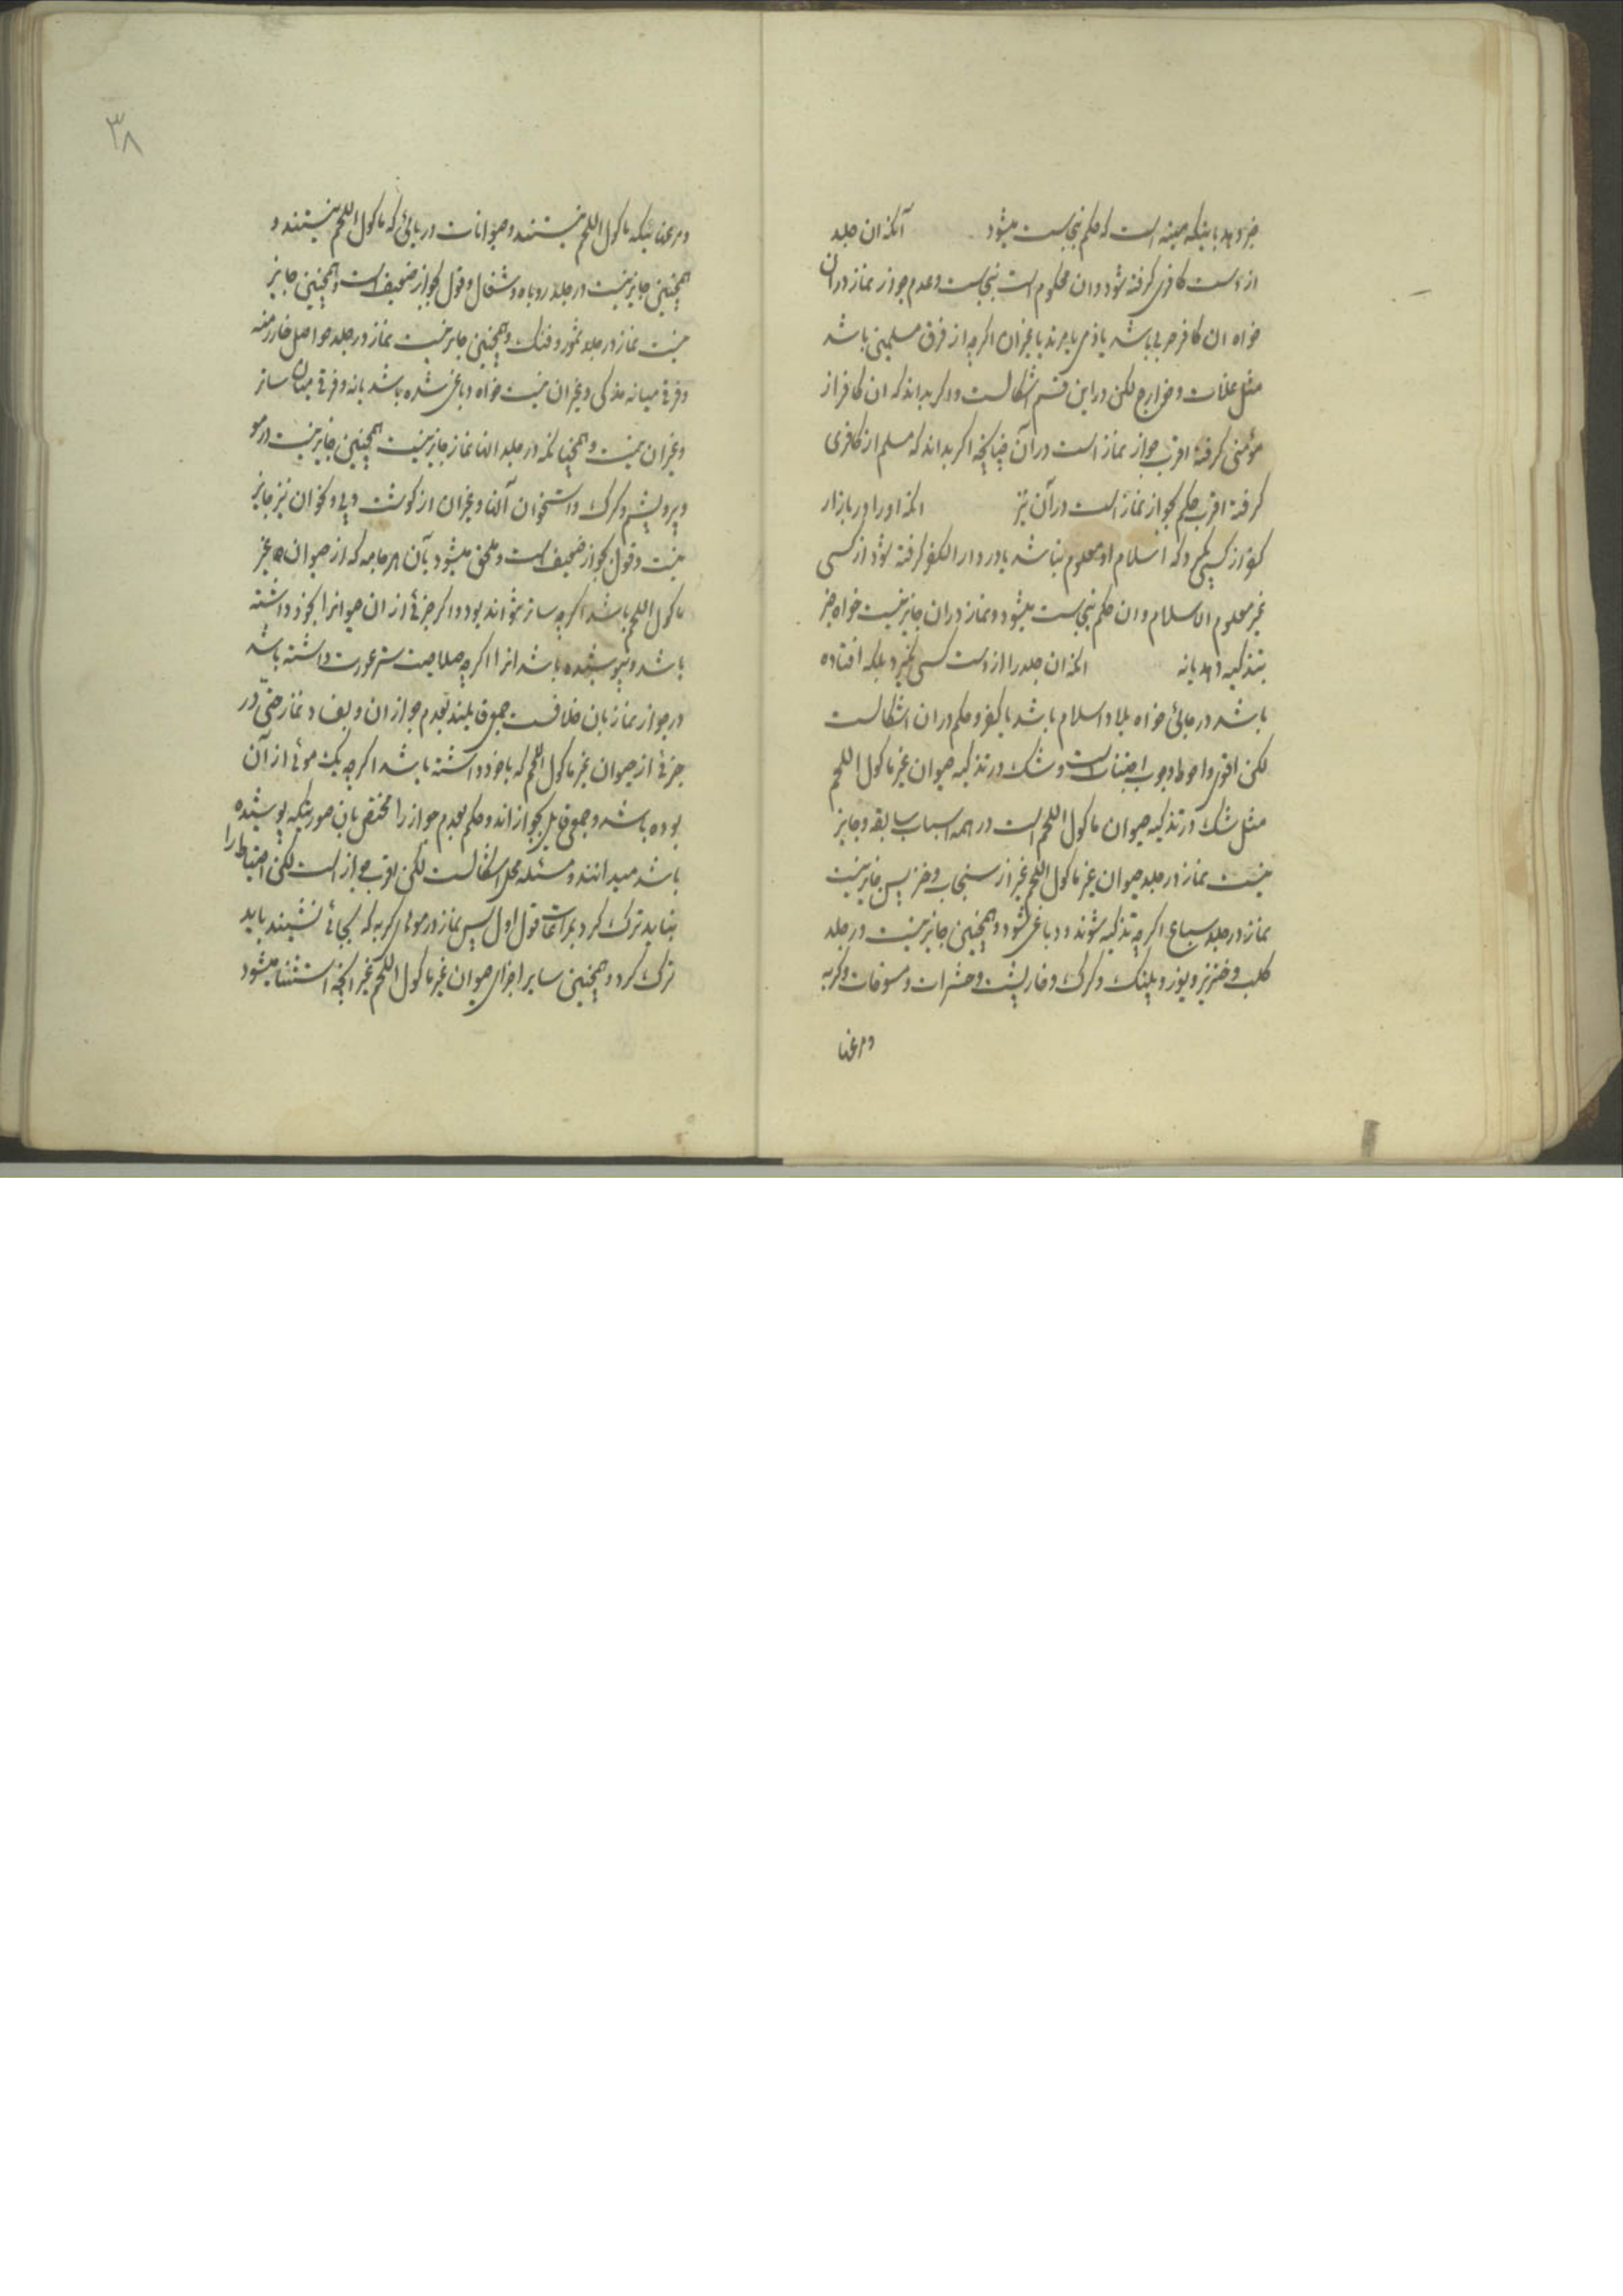 خبر دهد باینکه میته است که حکم بنجاست میشود آنکه ان جلد
از دست کافری گرفته شود و ان محکوم است بنجاست و عدم جواز نماز در ان
خواه ان کافر حربی باشد یا ذمی یا مرتد یا غیر ان اگرچه از فرق مسلمین باشد
مثل غلات و خوارج لکن در این قسم اشکالست و اگر بداند که ان کافر از
مؤمنی گرفته اقرب جواز نماز است در آن چنانچه اگر بداند که مسلم از کافری
گرفته اقرب حکم بجواز نماز است در آن نیز انکه او را در بازار
کفر از کسی گیرد که اسلام او معلوم نباشد یا در دار الکفر گرفته شود از کسی
غیر معلوم الاسلام و ان حکم بنجاست میشود و نماز در ان جایز نیست خواه خبر
بتذکیه دهد یا نه انکه ان جلد را از دست کسی نگیرد بلکه افتاده
باشد در جائی خواه بلاد اسلام باشد یا کفر و حکم در ان اشکالست
لکن اقوی و احوط وجوب اجتناب است و شک در تذکیه حیوان غیر ماکول اللحم
مثل شک در تذکیه حیوان ماکول اللحم است در همه اسباب سابقه و جایز
نیست نماز در جلد حیوان غیر ماکول اللحم غیر از سنجاب و خز پس جایز نیست
نماز در جلد سباع اگرچه تذکیه شوند و دباغی شود و همچنین جایز نیست در جلد
کلب و خنزیر و یوز و پلنگ و گرگ و خارپشت و حشرات و مسوخات و گربه
و مرغها
٣٨
و مرغهائیکه ماکول اللحم نیستند و حیوانات دریائی که ماکول اللحم نیستند و
همچنین جایز نیست در جلد روباه و شغال و قول بجواز ضعیف است و همچنین جایز
نیست نماز در جلد سمور و فنک و همچنین جایز نیست نماز در جلد حواصل خوارزمیه
و فرقی میانه مذکی و غیر ان نیست خواه دباغی شده باشد یا نه و فرقی میان ساتر
و غیر ان نیست و همچنانکه در جلد انها نماز جایز نیست همچنین جایز نیست در مو
و پر و پشم و کرک و استخوان آنها و غیر ان از گوشت و پی و نحو ان نیز جایز
نیست و قول بجواز ضعیف است و ملحق میشود بآن هر جامه که از حیوان غیر
ماکول اللحم باشد اگرچه ساتر نتواند بود و اگر جزئی از ان حیوانرا بخود داشته
باشد و نپوشیده باشد انرا اگرچه صلاحیت ستر عورت داشته باشد
در جواز نماز بان خلافست جمعی قایلند بعدم جواز ان و بفساد نماز حتی در
جزئی از حیوان غیر ماکول اللحم که با خود داشته باشد اگرچه یک موئی از آن
بوده باشد و جمعی قایل بجواز اند و حکم بعدم جواز را مختص بان صورتیکه پوشیده
باشد میدانند و مسئله محل اشکالست لکن اقرب جواز است لکن احتیاط را
نباید ترک کرد بمراعات قول اول پس نماز در موهای گربه که بجائی نشیند باید
ترک کرد و همچنین سایر اجزای حیوان غیر ماکول اللحم غیر انچه استثنا میشود